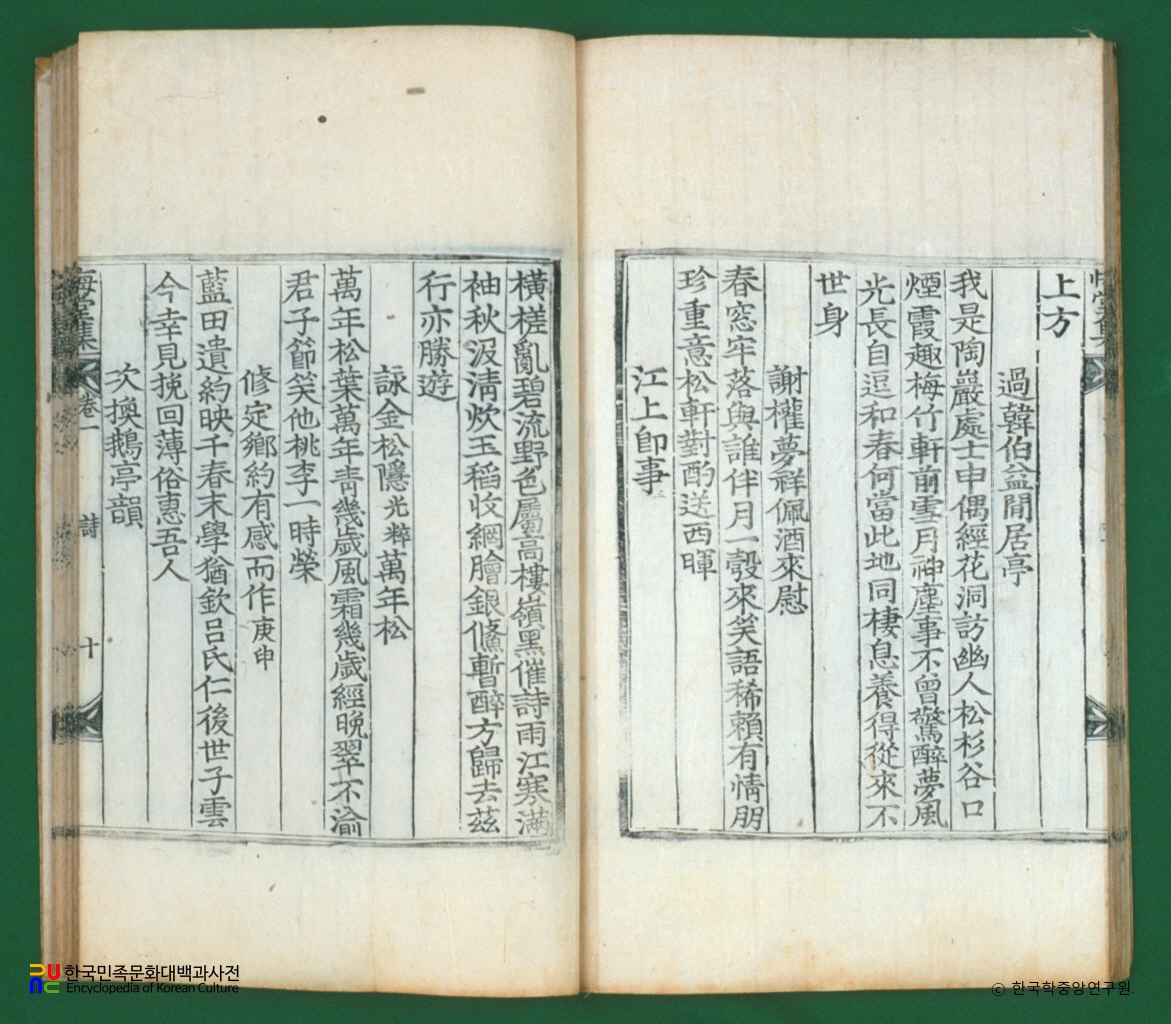 上方
過韓伯益閒居亭
我是陶巖處士申偶經花洞訪幽人松杉谷口
煙霞趣梅竹軒前雪月神塵事不曾驚醉夢風
光長自逗和春何當此地同棲息養得從來不
世身
謝權夢祥佩酒來慰
春窓牢落與誰伴月一彀來笑語稀賴有情朋
珍重意松軒對酌送西暉
江上卽事
橫槎亂碧流野色屬高樓嶺黑催詩雨江寒滿
袖秋汲淸炊玉稻收網膾銀鯈暫醉方歸去玆
行亦勝遊
詠金松隱光粹萬年松
萬年松葉萬年靑幾歲風霜幾歲經晩翠不渝
君子節笑他桃李一時榮
修定鄕約有感而作庚申
藍田遺約映千春末學猶欽呂氏仁後世子雲
今幸見挽回薄俗惠吾人
次換鵝亭韻
悔堂集 卷一 詩 十
한국민족문화대백과사전
Encyclopedia of Korean Culture
© 한국학중앙연구원.